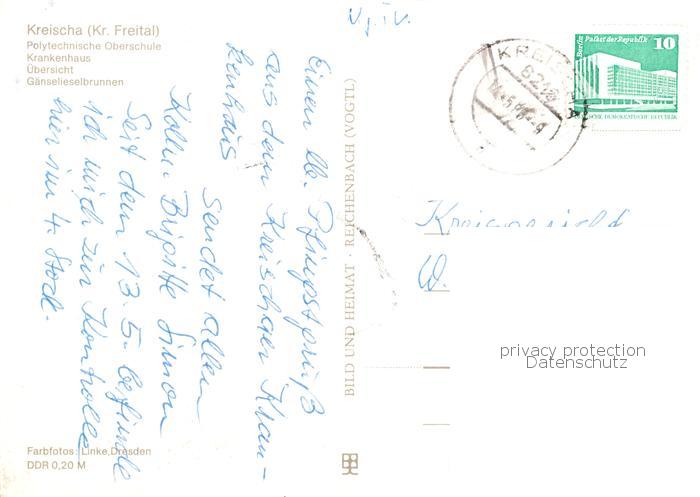 Kreischa (Kr. Freital)
Polytechnische Oberschule
Krankenhaus
Übersicht
Gänselieselbrunnen
V, IV.
Einen lb. Pfingstgruß
aus dem Kreischaer Kran-
kenhaus
sendet allen
Kolln. Brigitte Simon
Seit dem 13.5. befinde
ich mich zur Kontrolle
hier im 4. Stock.
Farbfotos: Linke, Dresden
DDR 0,20 M
BILD UND HEIMAT · REICHENBACH (VOGTL)
KREISCHA
Berlin Palast der Republik 10
DEUTSCHE DEMOKRATISCHE REPUBLIK
Kreisgericht
W.
privacy protection
Datenschutz